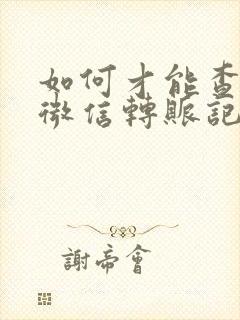 如何才能查
微信轉賬記
謝帝會